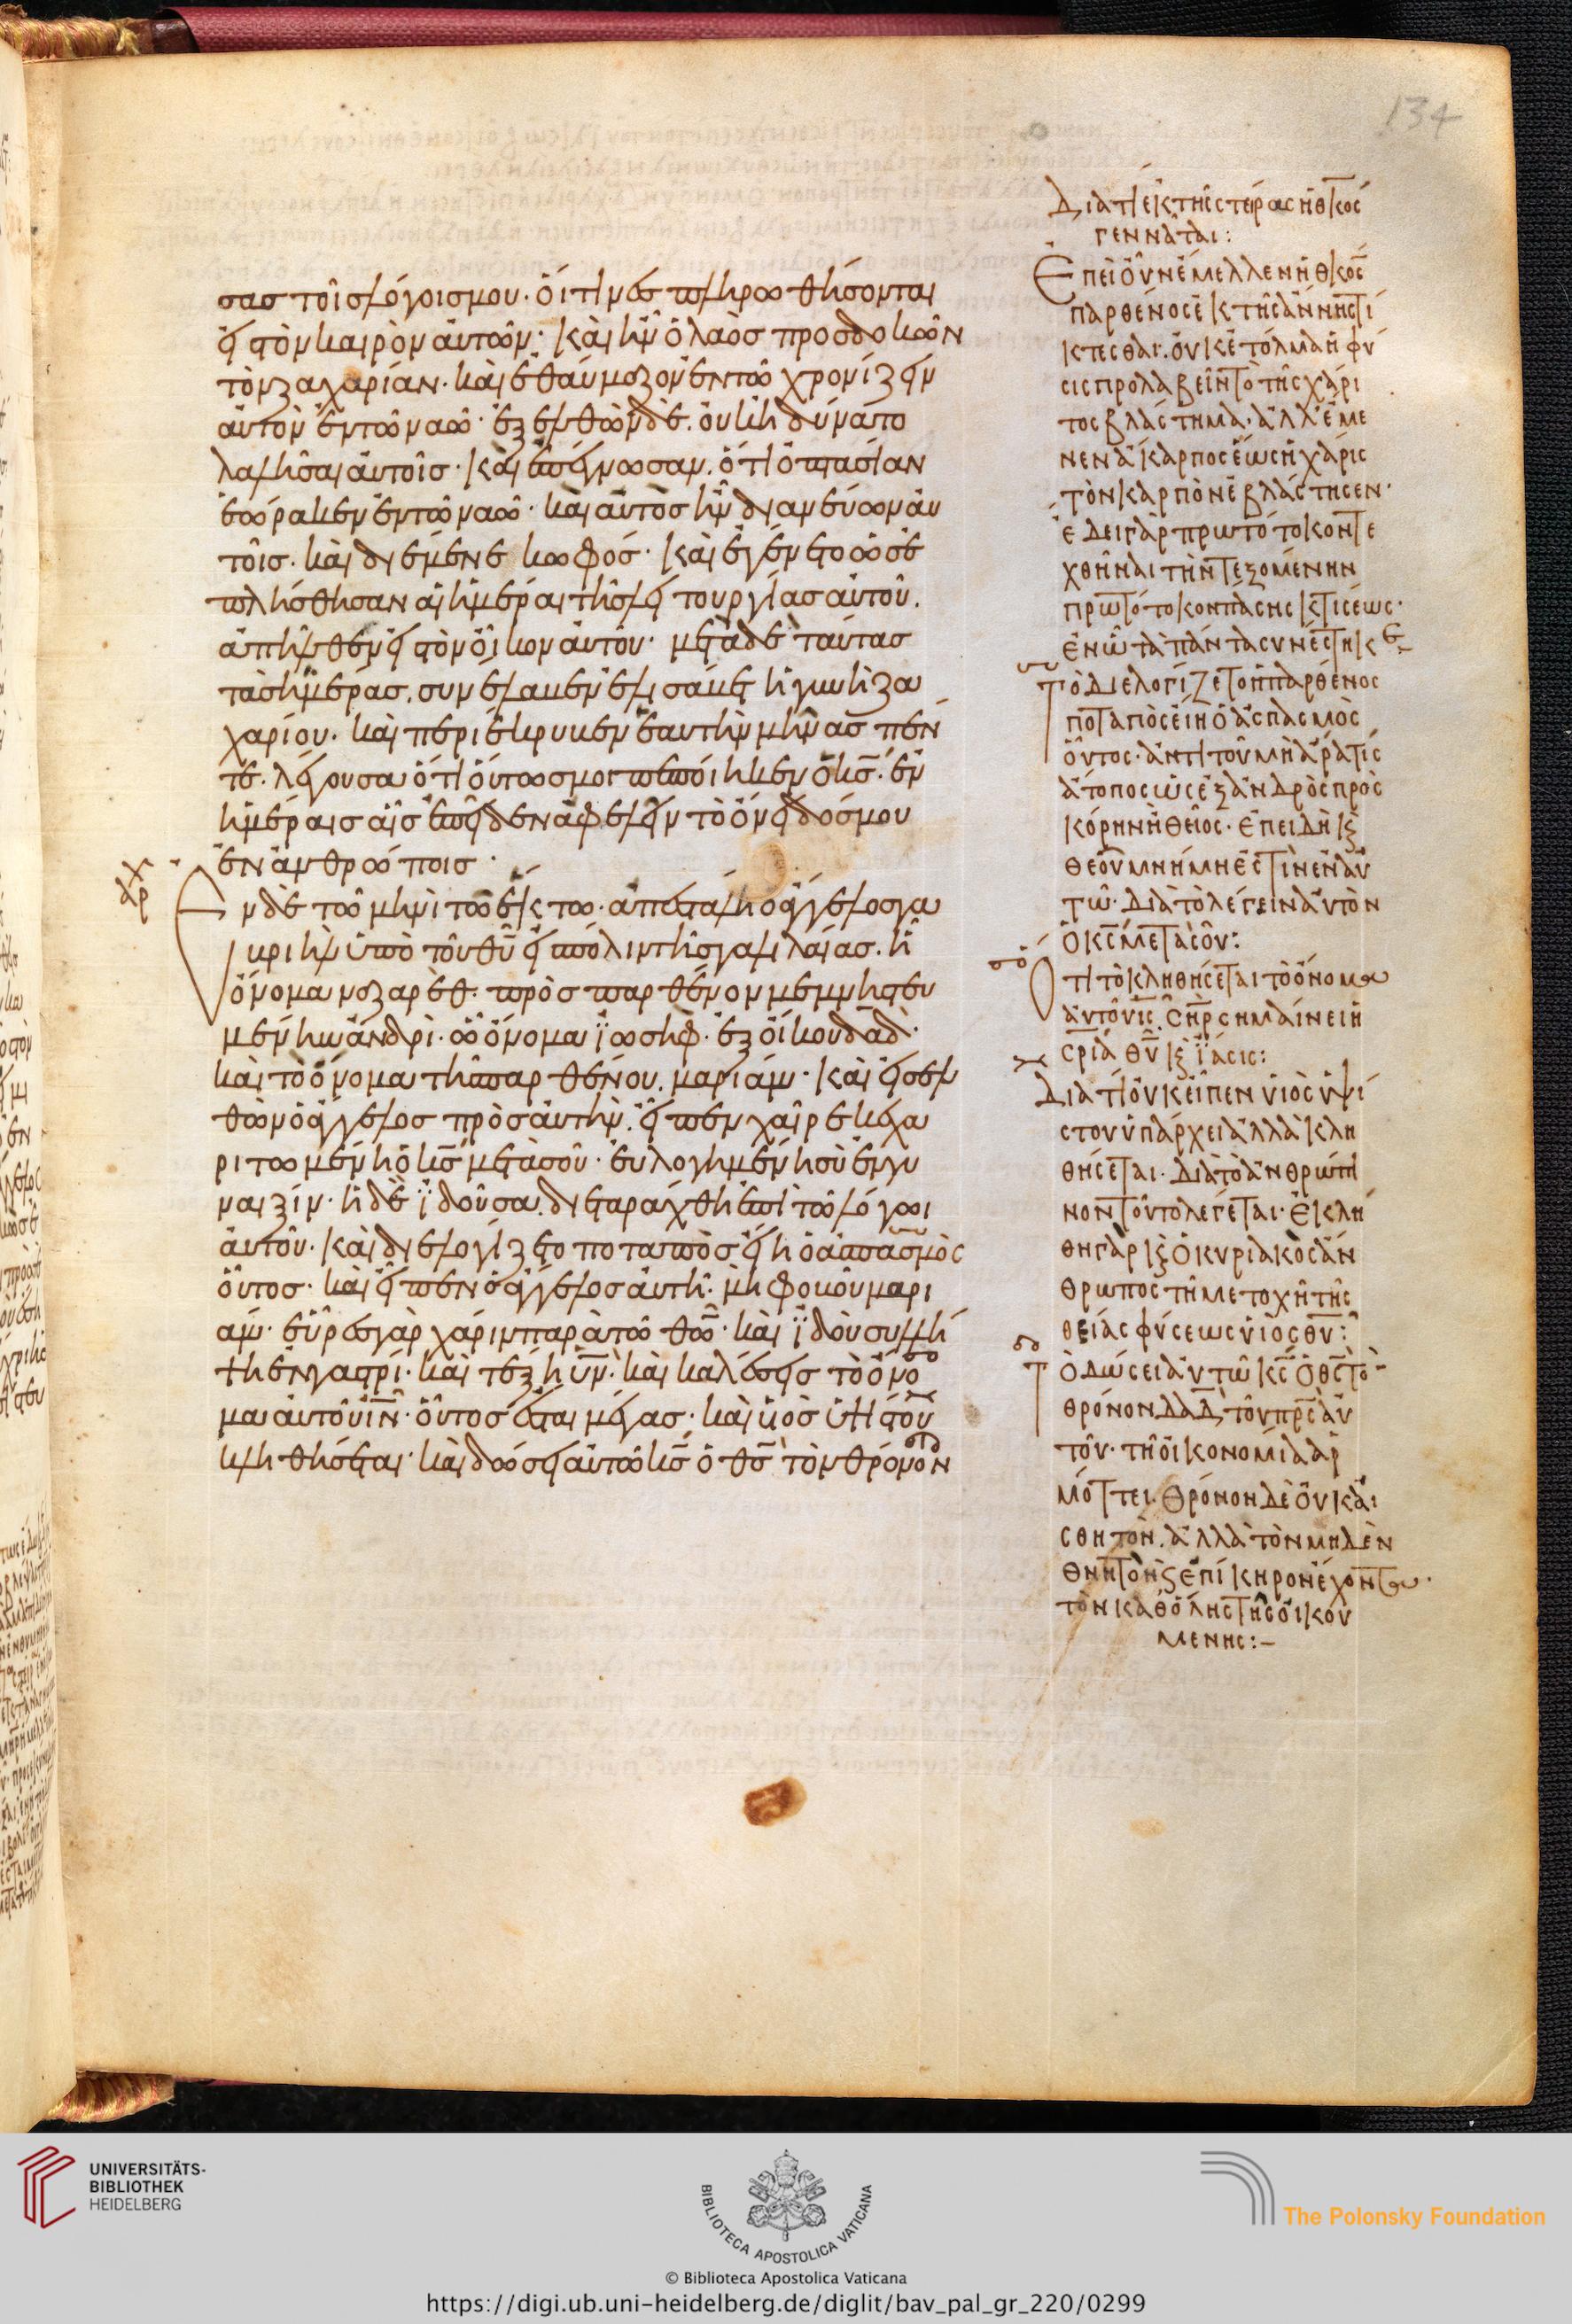 134
σασ τοῖσ λόγοισ μου· ὅιτινεσ πληρωθήσονται
εἰσ τὸν καιρὸν ἀυτῶν· καὶ ἦν ὁ λαὸσ προσδοκῶν
τὸν ζαχαρίαν· καὶ ἐθαύμαζον ἐν τῶ χρονίζειν
ἀυτὸν ἐν τῶ ναῶ· ἐξελθὼν δὲ. ὀυκ ἠδύνατο
λαλῆσαι ἀυτοῖσ· καὶ ἐπέγνωσαν. ὅτι ὀπτασίαν
ἑώρακεν ἐν τῶ ναῶ· καὶ ἀυτὸσ ἦν διανεύων ἀυ
τοῖσ. καὶ διέμενε κωφόσ· καὶ ἐγένετο ὡσ ἐ
πλήσθησαν αἱ ἡμέραι τῆσ λειτουργίασ ἀυτοῦ.
ἀπῆλθεν εἰσ τὸν ὂικον ἀυτοῦ· μετὰ δὲ ταύτασ
τὰσ ἡμέρασ. συνέλαβεν ἐλισάβετ ἡ γυνὴ ζα
χαρίου· καὶ περιέκρυβεν ἑαυτὴν μῆνασ πέν
τε· λέγουσα ὅτι ὅυτωσ μοι πεποίηκεν ὁ κσ· ἐν
ἡμέραισ ἆισ ἐπεῖδεν ἀφελεῖν τὸ ὄνειδόσ μου
ἐν ἀνθρώποισ·
αρχ
Εν δὲ τῶ μηνὶ τῶ ἕκτω· ἀπεστάλη ὁ ἄγγελοσ γα
βριὴλ ὑπὸ τοῦ θυ εἰσ πόλιν τῆσ γαλιλαίασ. ἧ
ὄνομα ναζαρέθ· πρὸσ παρθένον μεμνηστευ
μένην ἀνδρὶ· ὧ ὄνομα ϊωσὴφ· ἐξ ὄικου δαδ·
καὶ τὸ ὄνομα τῆσ παρθένου. μαριάμ· καὶ εἰσελ
θὼν ὁ ἄγγελοσ πρὸσ ἀυτὴν. εἶπεν χαῖρε κεχα
ριτωμένη ὁ κσ μετὰ σοῦ· ἐυλογημένη σὺ ἐν γυ
ναιξίν· ἡ δὲ ϊδοῦσα. διεταράχθη ἐπὶ τῶ λόγωι
ἀυτοῦ· καὶ διελογίζετο ποταπὸσ εἴη ὁ ἀσπασμὸς
ὅυτοσ· καὶ εἶπεν ὁ ἄγγελοσ ἀυτῆ· μὴ φοβοῦ μαρι
άμ· ἕυρεσ γὰρ χάριν παρὰ τῶ θω· καὶ ϊδοὺ συλλή
ψη ἐν γαστρί· καὶ τέξη υν· καὶ καλέσεισ τὸ ὄνο
μα ἀυτοῦ ιν· ὅυτοσ ἔσται μέγασ· καὶ υοσ ὑψίστου
κληθήσεται· καὶ δώσει ἀυτῶ κσ ὁ θσ τὸν θρόνον
Διατί ἐκ τῆς στείρας ἡ θκος
γεννᾶται:
Ἐπεὶ ὀῦν ἔμελλεν ἡ θκος
παρθένος ἐκ τῆς ἄννης τί
κτεσθαι. ὀυκ ἐτόλμα ἡ φύ
σις προλαβεῖν τὸ τῆς χάρι
τος βλάστημα· ἀλλ' ἔμε
νεν ἄκαρπος ἕως ἡ χάρις
τὸν καρπὸν ἐβλάστησεν·
ἔδει γὰρ πρωτότοκον τε
χθῆναι τὴν τεξομένην
πρωτότοκον πάσης κτίσεως·
ἐν ὧ τὰ πάντα συνέστηκε
Τὸ διελογίζετο ἡ παρθένος
ποταπὸς ἔιη ὁ ἀσπασμὸς
ὅυτος· ἀντὶ τοῦ μὴ ἄρα τίς
ἄτοπος ὡς ἐξ ἀνδρὸς πρὸς
κόρην ἢ θεῖος· ἐπειδὴ κ
θεοῦ μνήμη ἐστὶν ἐν ἀυ
τῶ· διὰ τὸ λέγειν ἀυτὸν
ὁ κς μετὰ σοῦ:
Ὅτι τὸ κληθήσεται τὸ ὄνομα
ἀυτοῦ ις. σηρ σημαίνει ἡ
σρία θυ κ ϊασις:
Διατί ὀυκ εἶπεν υἱὸς ὑψί
στου ὑπάρχει ἀλλὰ κλη
θήσεται· διὰ τὸ ἀνθρώπι
νον τοῦτο λέγεται· ἐκλή
θη γὰρ κ ὁ κυριακὸς ἄν
θρωπος τῆ μετοχῆ τῆς
θείας φύσεως υἱὸς θυ:
Τὸ δώσει ἀυτῶ κς ὁ θς τὸν
θρόνον δαδ τοῦ πρς ἀυ
τοῦ· τῆ ὀικονομία ἁρ
μόττει. θρόνον δὲ ὀυκ ἀι
σθητὸν. ἀλλὰ τὸν μηδὲν
θνητὸν ἢ ἐπίκηρον ἔχοντα·
τὸν καθ' ὅλης τῆς ὀικου
μένης:–
UNIVERSITÄTS-
BIBLIOTHEK
HEIDELBERG
BIBLIOTECA APOSTOLICA VATICANA
The Polonsky Foundation
© Biblioteca Apostolica Vaticana
https://digi.ub.uni-heidelberg.de/diglit/bav_pal_gr_220/0299